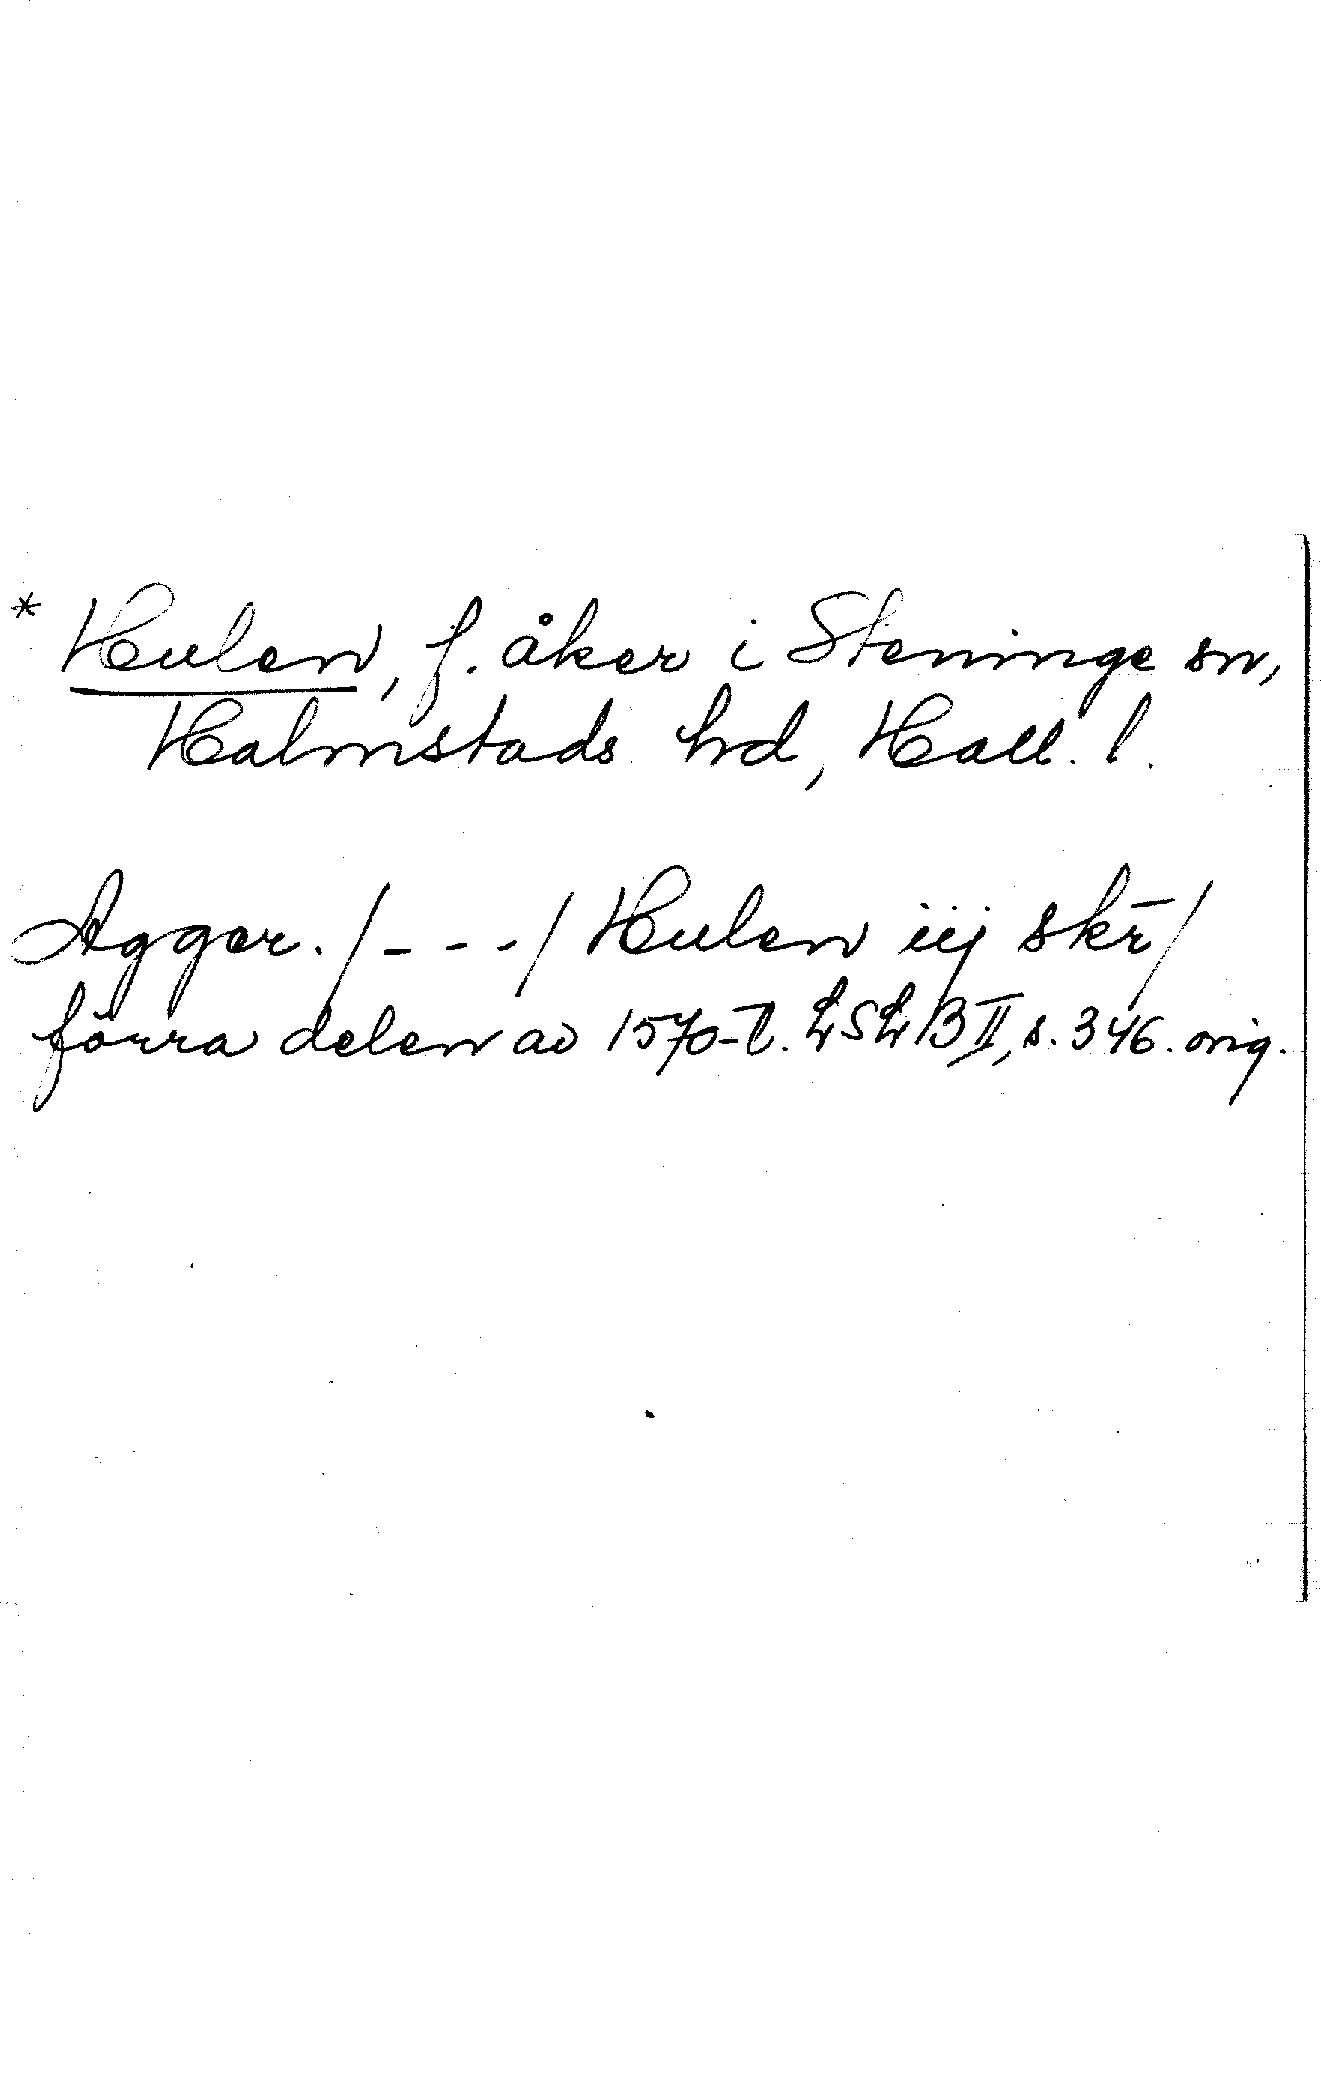 * Hulen, f. åker i Steninge sn,
Halmstads hd, Hall. l.
Agger. /---/ Hulen iij skr̄/
förra delen av 1570-t. LSLB II, s. 346. orig.